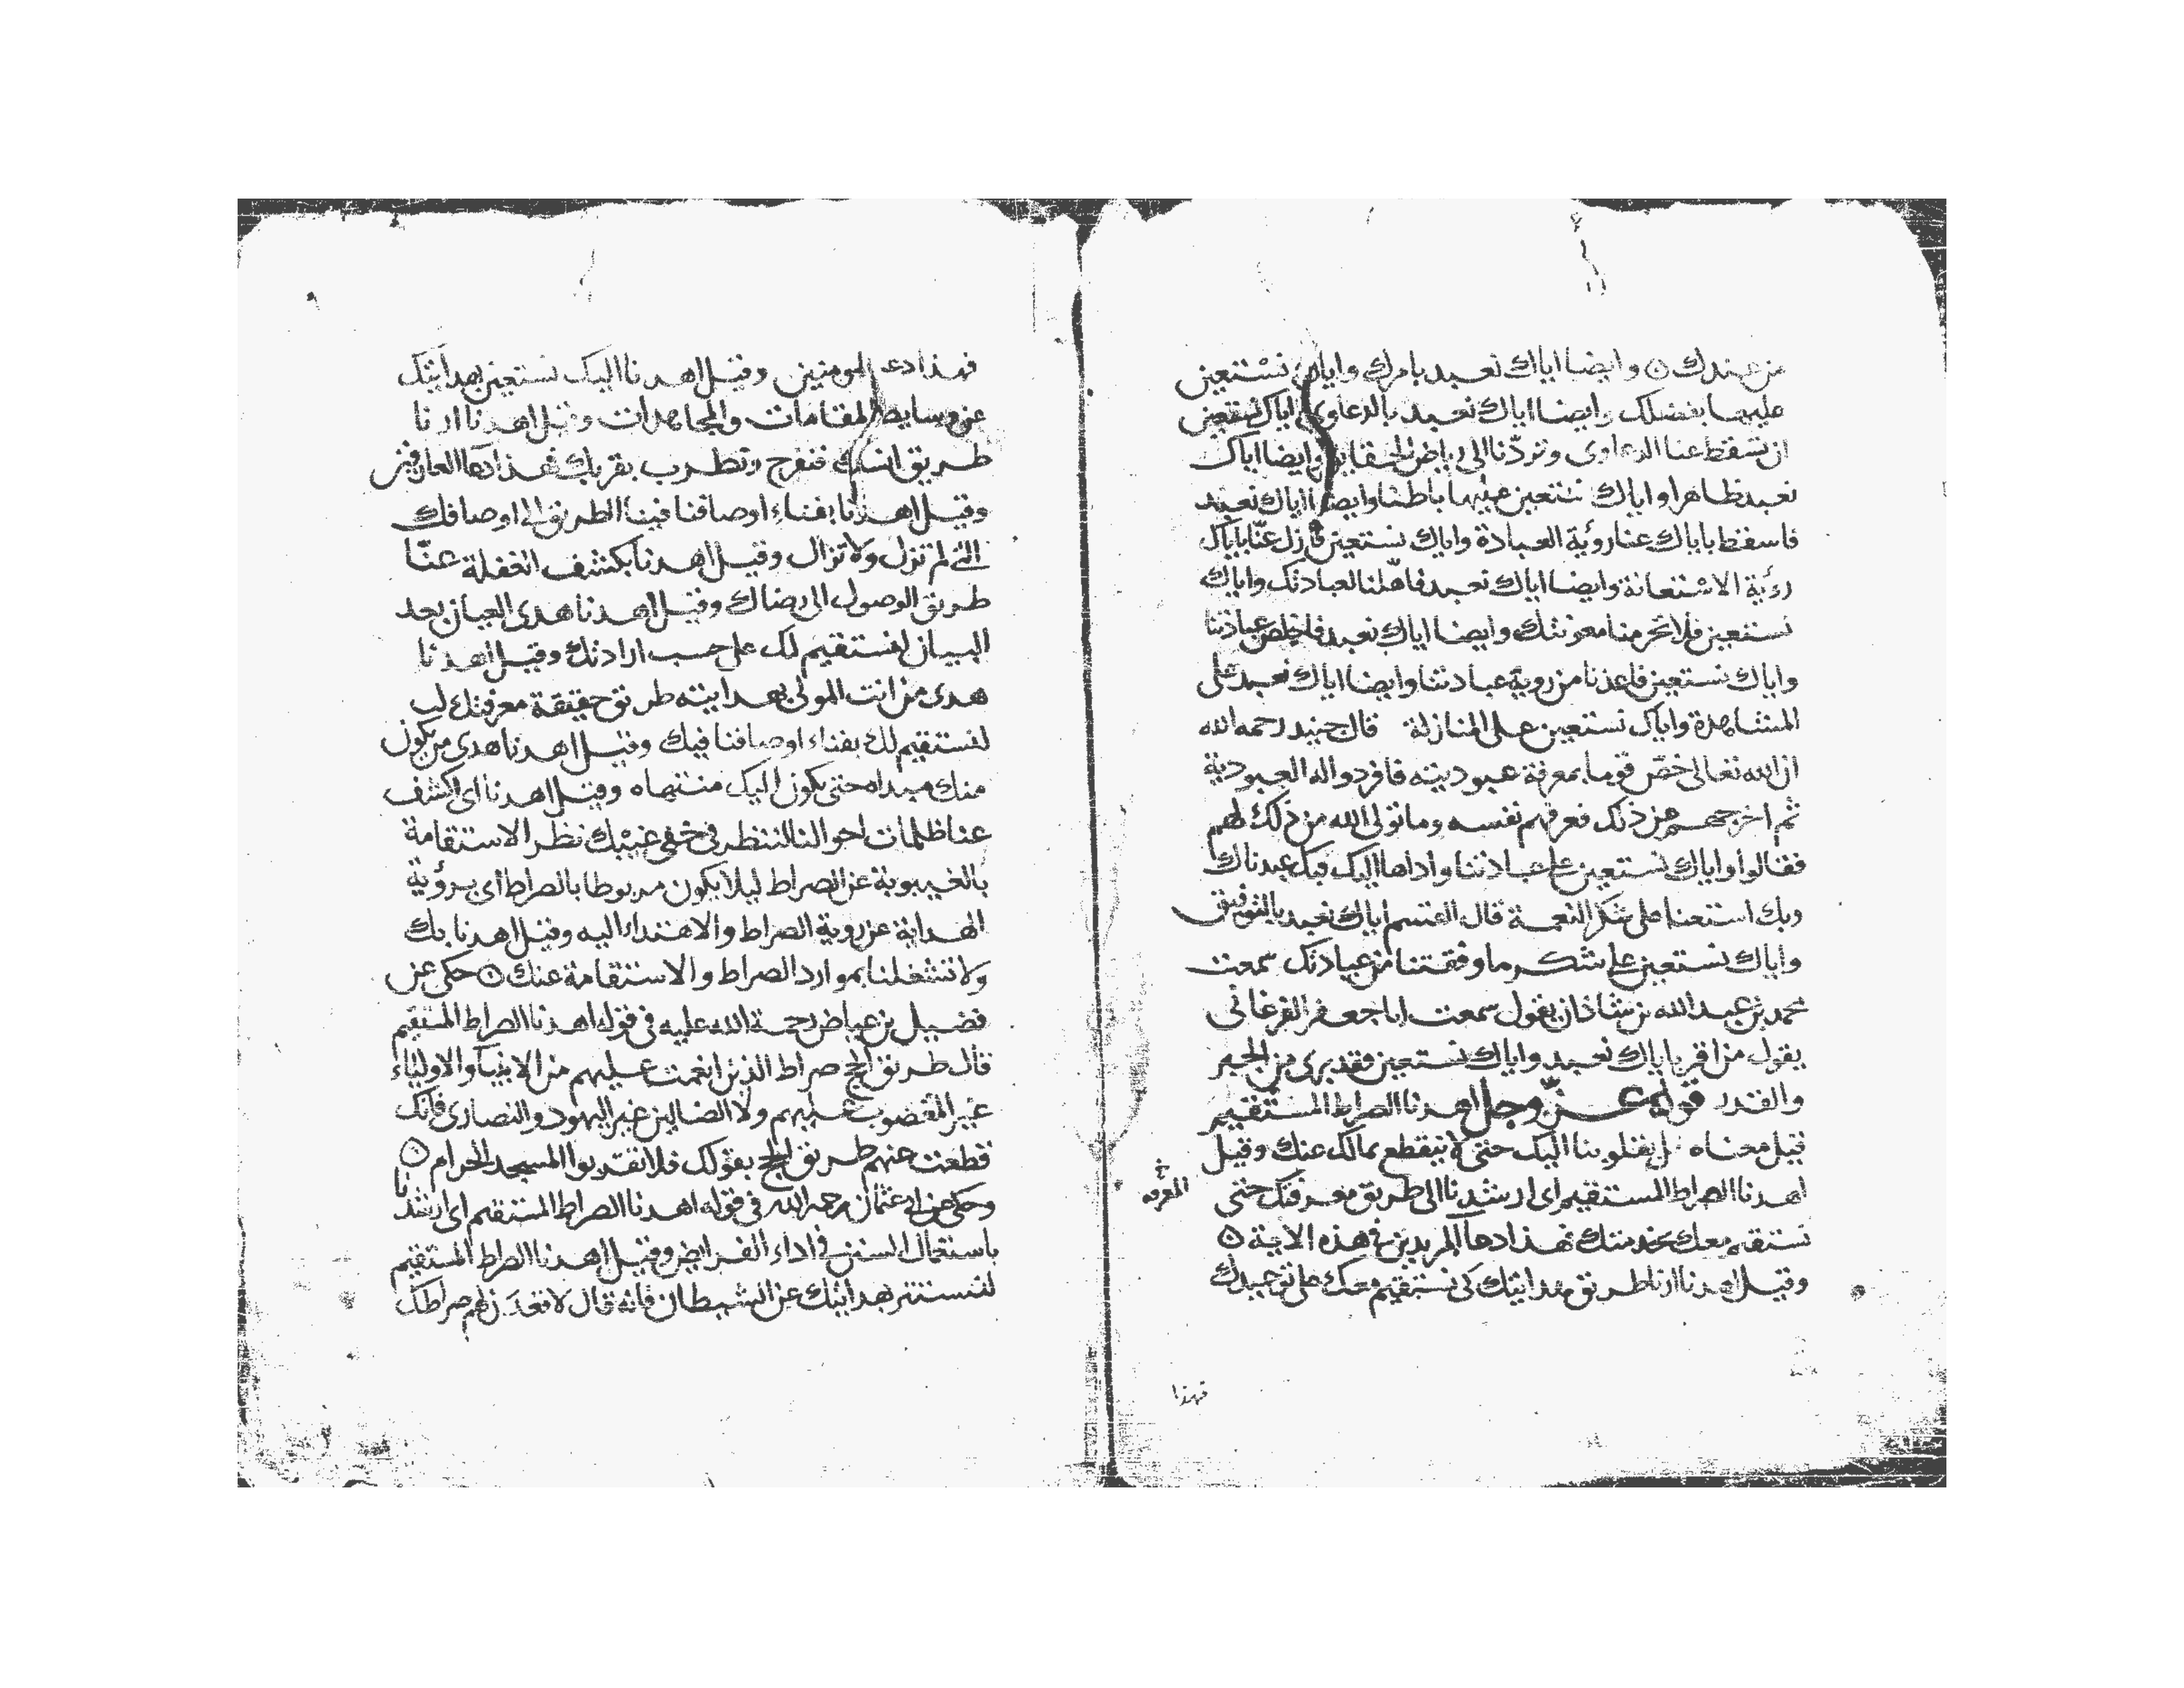 من عندك ۞ وايضا اياك نعبد بامرك واياك نستعين
عليها بفضلك وايضا اياك نعبد بالدعاوى واياك نستعين
ان تسقط عنا الدعاوى وتردّنا الى رياض الحقايق وايضا اياك
نعبد ظاهرا واياك نستعين عليها باطنا وايضا اياك نعبد
فاسقط باياك عنا روية العبادة واياك نستعين فازل عنّا باياك
رؤية الاستعانة وايضا اياك نعبد فاهّلنا لعبادتك واياك
نستعين فلا تحرمنا معونتك وايضا اياك نعبد فاخلص عبادتنا
واياك نستعين فاعذنا من روية عبادتنا وايضا اياك نعبد على
المشاهدة واياك نستعين على المنازلة قال جنيد رحمه الله
ان الله تعالى خصّ قوما بمعرفة عبوديته فافردوا له العبودية
ثم اخرجهم عن ذلك فعرفهم نفسه وما تولى الله من ذلك لهم
فقالوا واياك نستعين على عبادتنا واداها اليك فبك عبدناك
وبك استعنا على شكر النعمة قال القسم اياك نعبد بالتوفيق
واياك نستعين على شكر ما وفقتنا من عبادتك سمعت
محمد بن عبد الله بن شاذان يقول سمعت ابا جعفر الفرغانى
يقول من اقر باياك نعبد واياك نستعين فقد برى من الجبر
والقدر قوله عزّ وجل اهدنا الصراط المستقيم
قيل معناه مل بقلوبنا اليك حتى لا ينقطع بمالك عنك وقيل
اهدنا الصراط المستقيم اى ارشدنا الى طريق معرفتك حتى
المعرفه
نستقيم معك بخدمتك فهذا دعا المريدين فى هذه الاية ۞
وقيل اهدنا ارنا طريق هدايتك كى نستقيم معك على توحيدك
فهذا
فهذا دعا المومنين وقيل اهدنا اليك نستعين بهدايتك
عن وسايط المقامات والمجاهدات وقيل اهدنا ارنا
طريق انسك فنفرح ونطرب بقربك فهذا دعا العارفين
وقيل اهدنا بفناء اوصافنا فينا الطريق الى اوصافك
التى لم تزل ولا تزال وقيل اهدنا بكشف الغفلة عنّا
طريق الوصول الى رضاك وقيل اهدنا هدى العيان بعد
البيان لنستقيم لك على حسب ارادتك وقيل اهدنا
هدى من انت المولى بهدايته طريق حقيقة معرفتك لب
لنستقيم لك بفناء اوصافنا فيك وقيل اهدنا هدى من يكون
منك مبداه حتى يكون اليك منتهاه وقيل اهدنا اى اكشف
عنا ظلمات احوالنا لننظر فى خفى غيبك نظر الاستقامة
بالغيبوبة عن الصراط ليلا يكون مربوطا بالصراط اى برؤية
الهداية عن روية الصراط والاهتداء اليه وقيل اهدنا بك
ولا تشغلنا بموارد الصراط والاستقامة عنك ۞ حكى عن
فضيل بن عياض رحمة الله عليه فى قوله اهدنا الصراط المستقيم
قال طريق الحج صراط الذين انعمت عليهم من الانبياء والاولياء
غير المغضوب عليهم ولا الضالين غير اليهود والنصارى فانك
قطعت عنهم طريق الحج بقولك فلا تقربوا المسجد الحرام ۞
وحكى عن ابى عثمان رحمه الله فى قوله اهدنا الصراط المستقيم اى ارشدنا
باستعمال السنن فى اداء الفرايض وقيل اهدنا الصراط المستقيم
لنستتر بهدايتك عن الشيطان فانه قال لاقعدن لهم صراطك